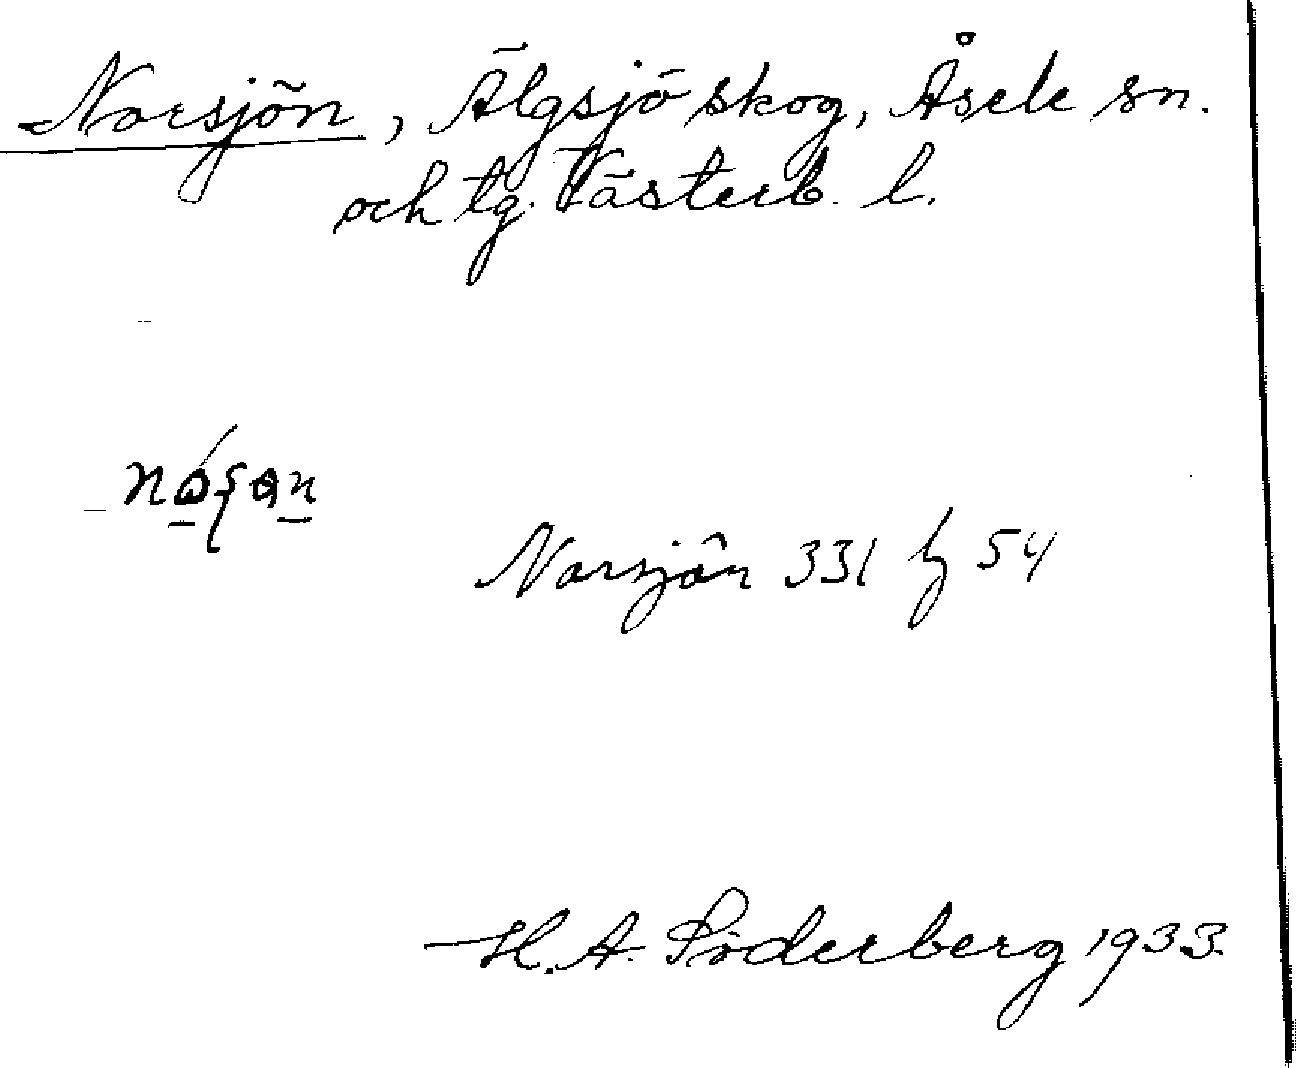 Norsjön, Älgsjö skog, Åsele sn.
och tg. Västerb. l.
Norsjön 331 hz 54
H. A. Söderberg 1933.